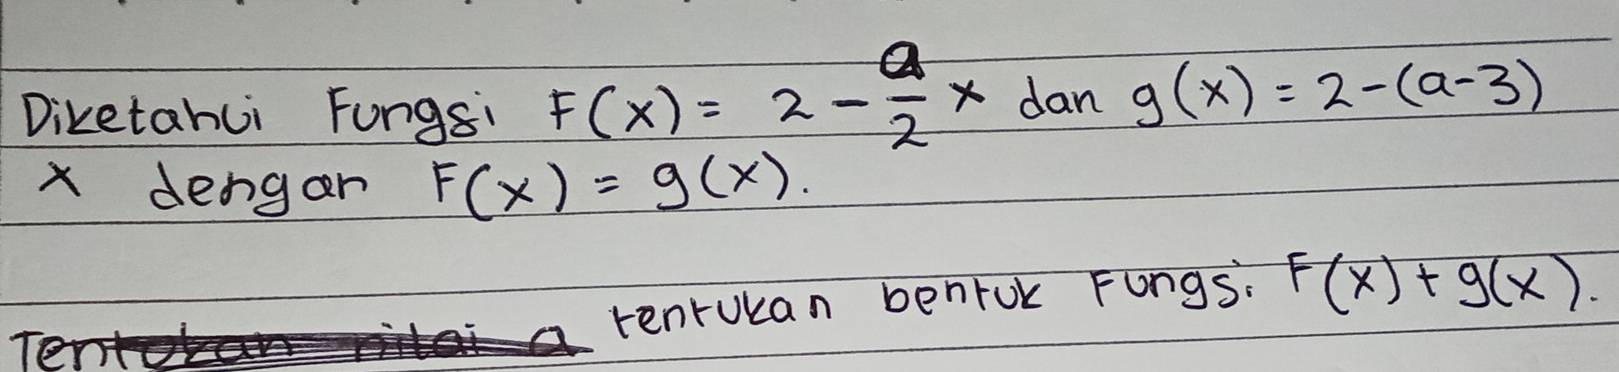 Diketahui Fungsi F(x) = 2 - a/2 x dan g(x) = 2-(a-3)
x dengan F(x) = g(x).
tentukan bentuk Fungsi F(x) + g(x).